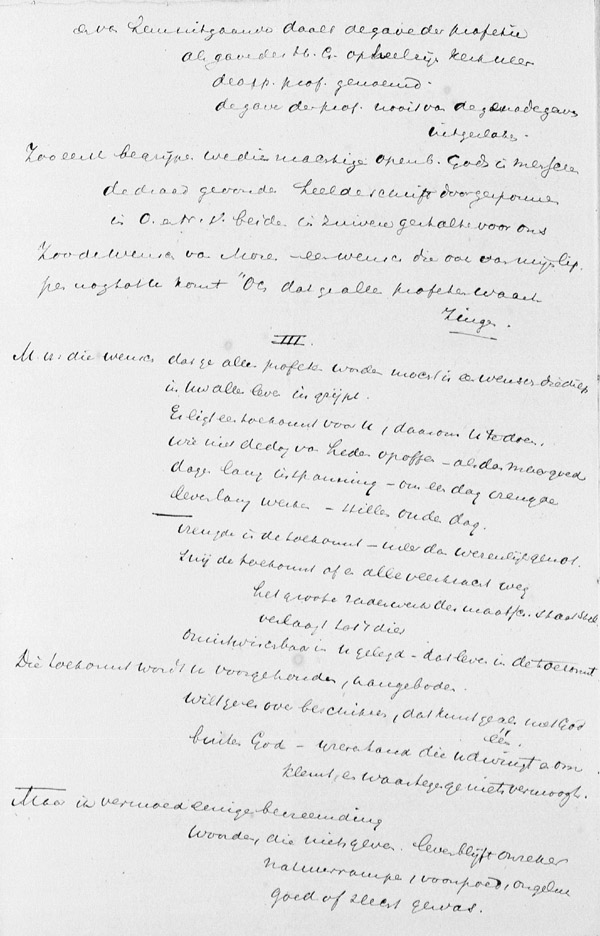 daalt de gave der profetie
als gave des H. G. op heel zijn Kerk neer
de app. prof. genoemd.
de gave der prof. nooit van de genadegaven
uitgesloten.
Zoo eerst begrijpen we die machtige openb. Gods in menschen
de draad gevonden heel de schrift doorgesponnen
in O. en N. V. beide in zuivere gestalte voor ons
Zoo de wensch van Mozes een wensch die ook van mijn lip
pen nog tot u komt "Och dat ge alle profeten waart
Zingen.
III.
M. H: die wensch dat ge alle profeten worden mocht is een wensch die diep
in uw alle leven in grijpt.
Er ligt een toekomst voor u, daarom u te doen.
wie niet de dag van heden opoffert als dan maar goed
dagen lang inspanning – om een dag vreugde
leven lang werken – stille oude dag.
vreugde in de toekomst – meer dan wezenlijk genot.
Snij de toekomst af en alle veerkracht weg
het groote raderwerk der maatsch. staat stil
verlaagt tot 't dier
onuitwischbaar in u gelegd – dat leven in de toekomst
Die toekomst wordt u voorgehouden, aangeboden.
wilt ge er over beschikken, dat kunt ge als met God
één.
buiten God – ijzeren hand die u dwingt en om
klemt, en waartegen ge niets vermoogt.
Maar ik vermoed eenige bevreemding
Woorden, die niets geven. leven blijft onzeker
natuurrampen, voorspoed, ongeluk
goed of slecht gewas.